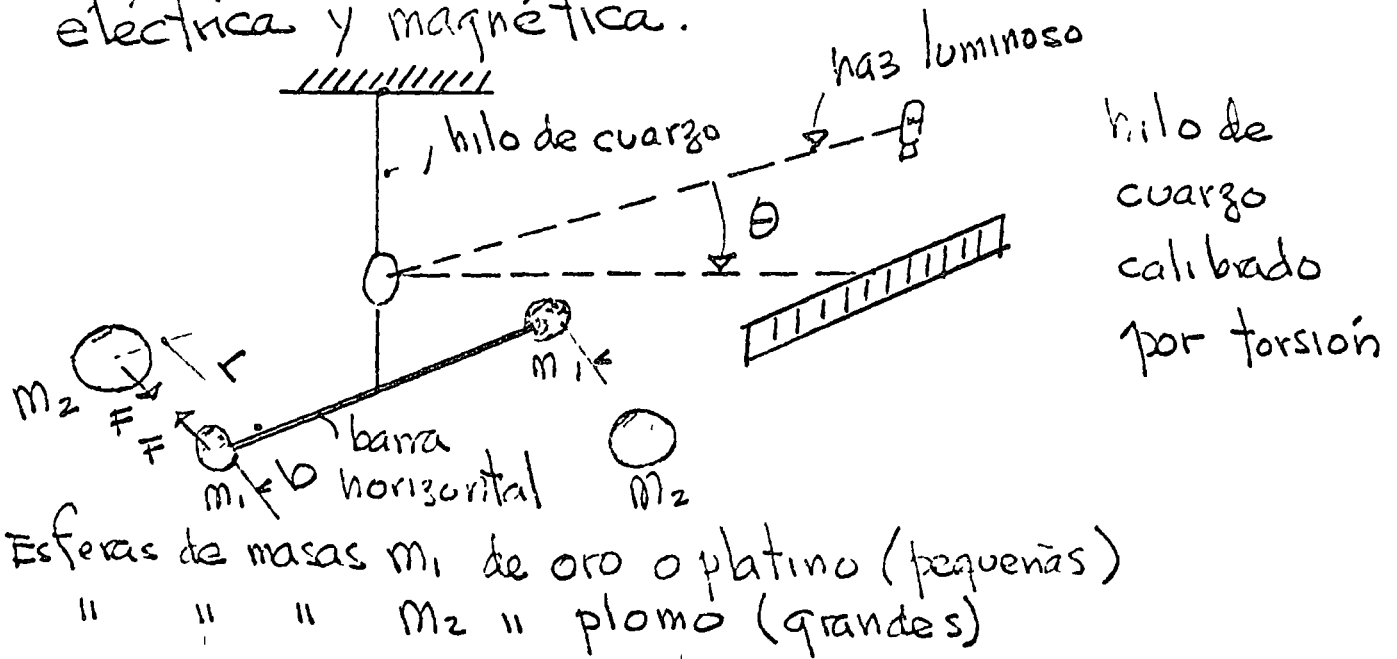 eléctrica y magnética.
haz luminoso
hilo de cuarzo
hilo de
cuarzo
calibrado
por torsión
θ
m₂
r
F
F
m₁
b
barra
horizontal
m₁
m₂
Esferas de masas m₁ de oro o platino (pequeñas)
" " " m₂ " plomo (grandes)